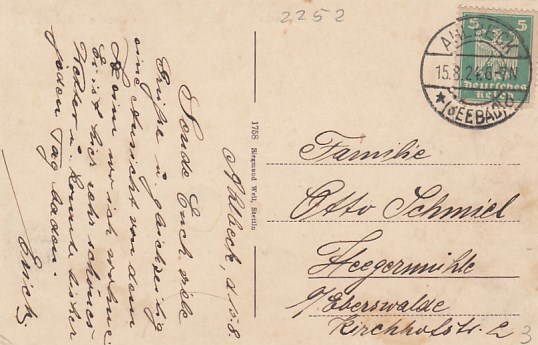 2252
AHLBECK
15.8.24.6-7N
(SEEBAD)
5 5
Deutsches
Reich
Ahlbeck, d. 15.8.
Sende Euch viele
Grüße u. gleichzeitig
eine Ansicht von dem
Heim wo ich wohne
Es ist hier sehr schönes
Wetter u. konnte bisher
jeden Tag baden.
Erich
1758 Siegmund Weil, Stettin
Familie
Otto Schmiel
Heegermühle
b/Eberswalde
Kirchhofstr. 2
3